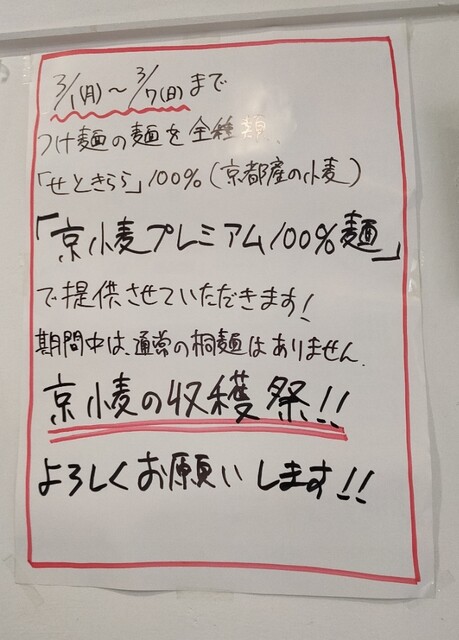 3/1(月)〜3/7(日)まで
つけ麺の麺を全種類、
「せときらら」100%(京都産の小麦)
「京小麦プレミアム100%麺」
で提供させていただきます!
期間中は、通常の桐麺はありません。
京小麦の収穫祭!!
よろしくお願いします!!